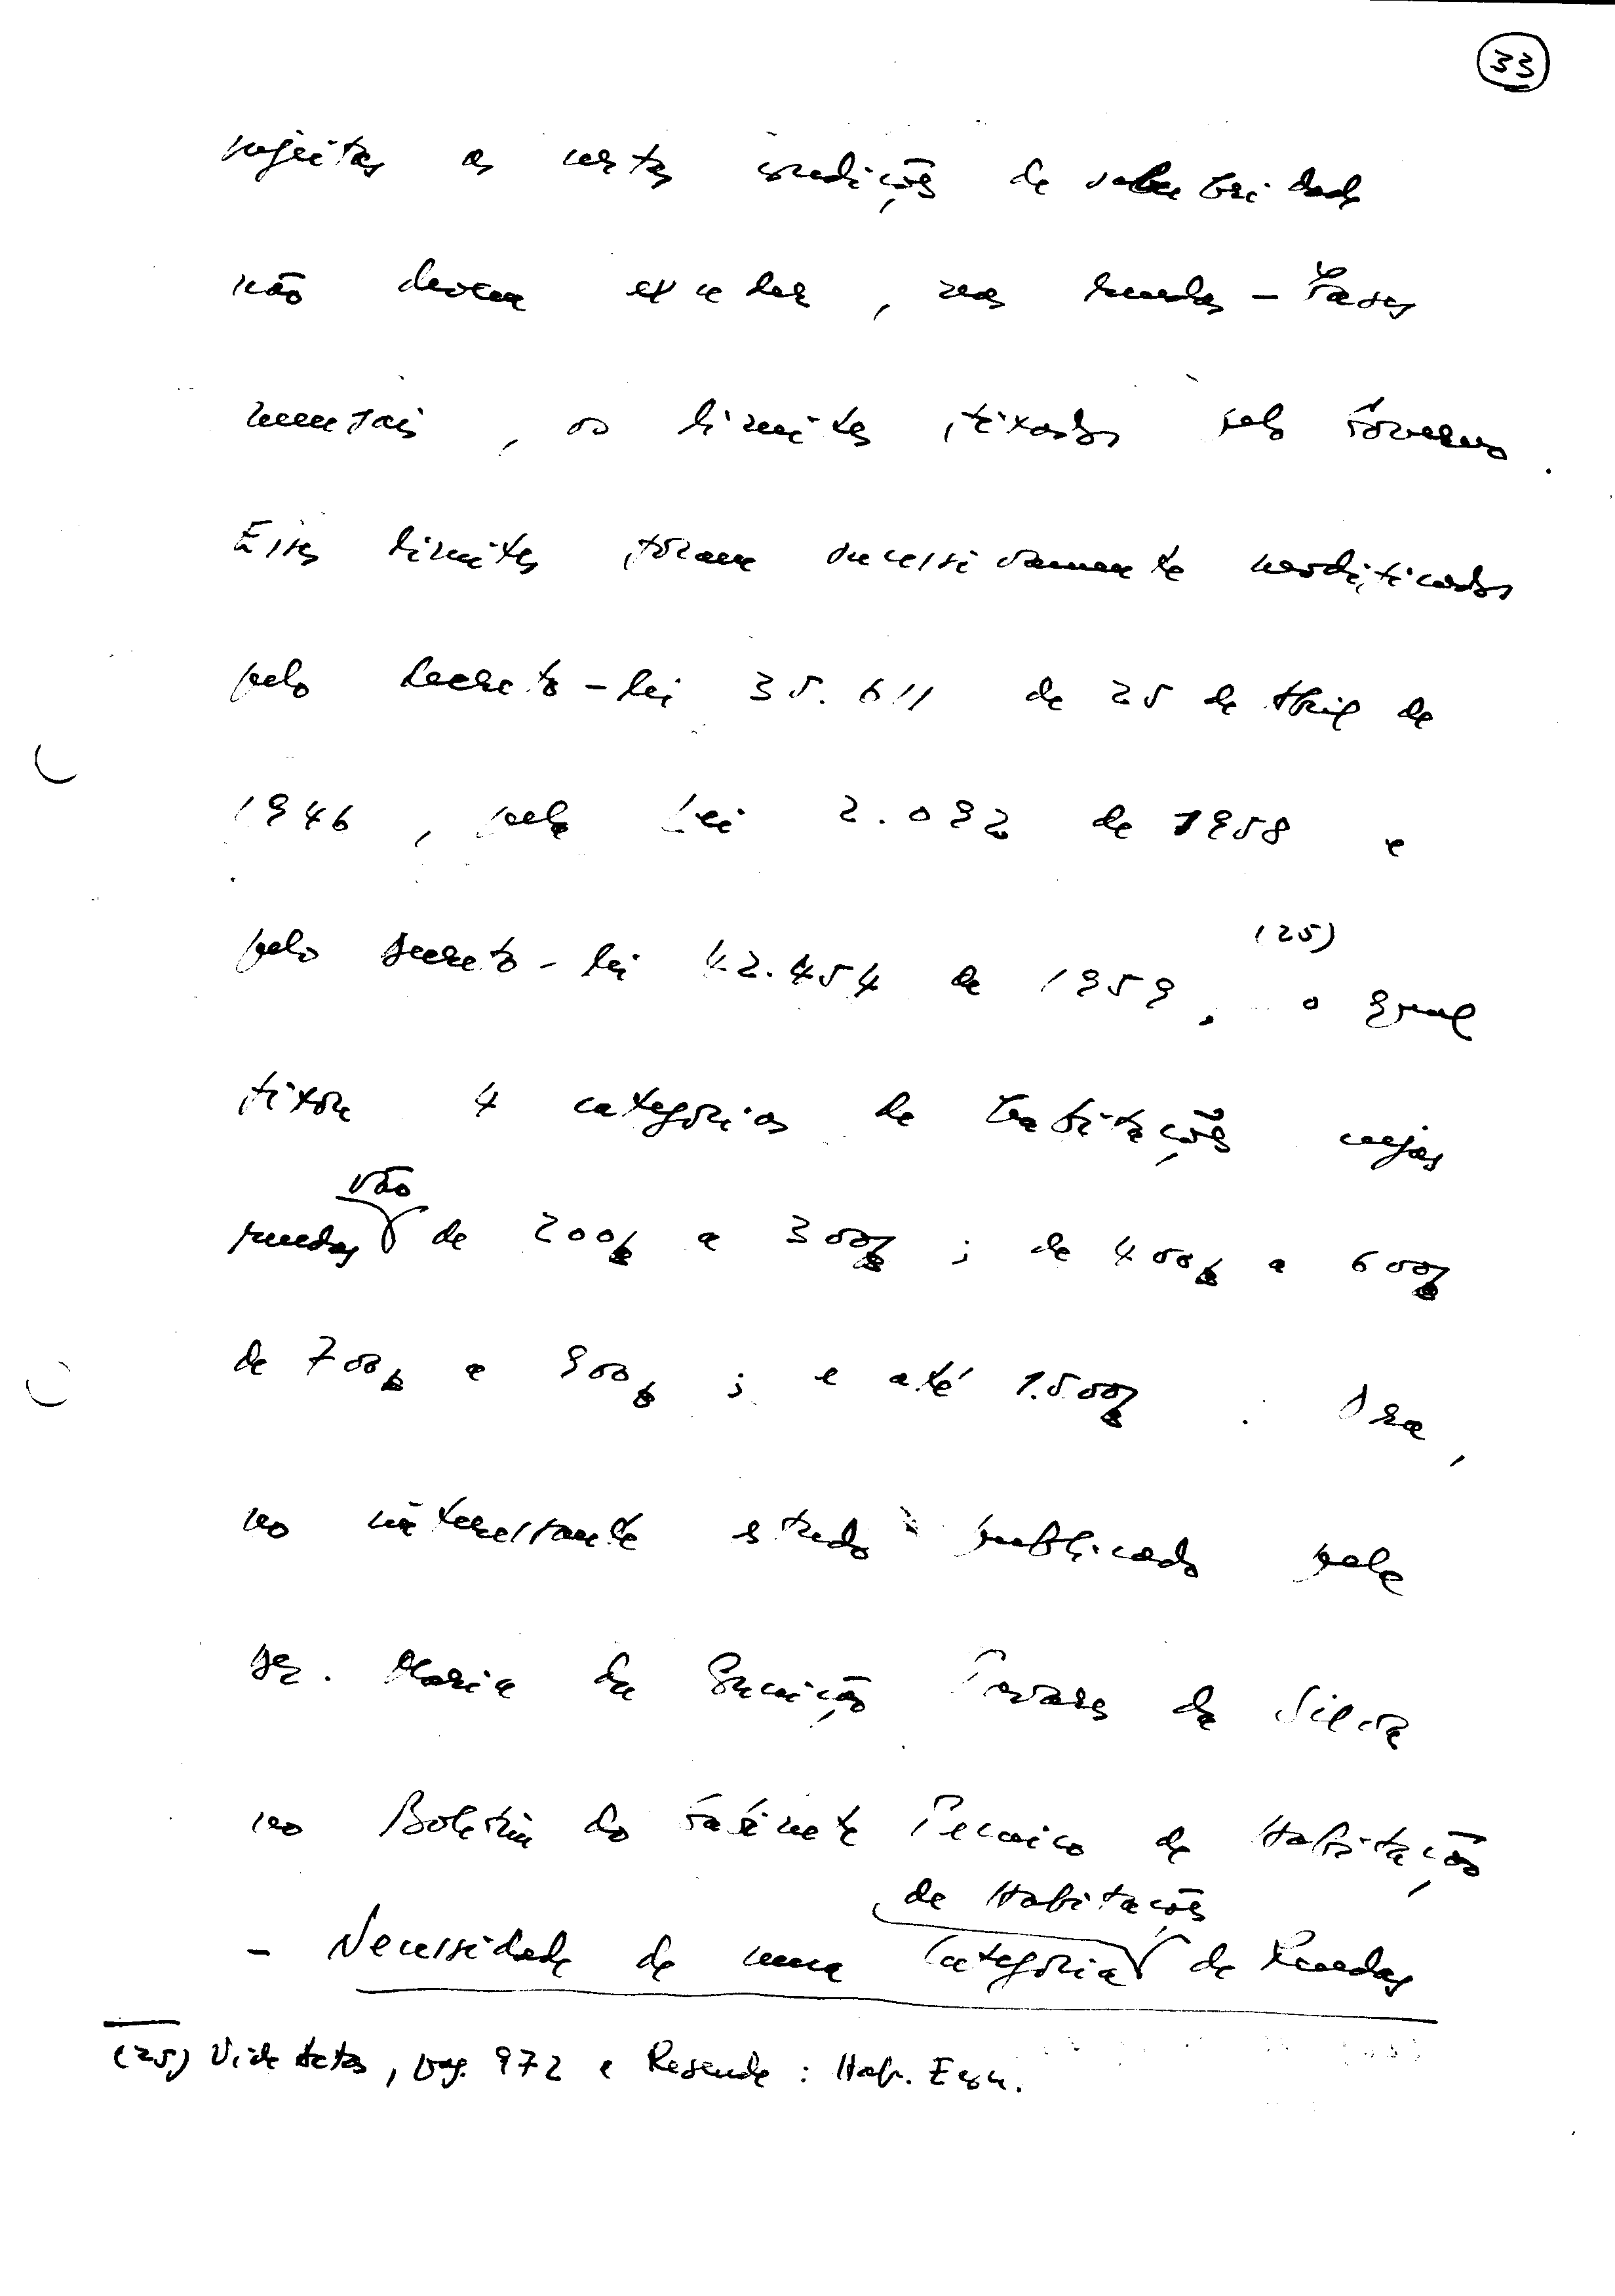 33
sujeitas a certas condições de salubridade
não devem exceder, nas rendas-bases
mensais, os limites fixados pelo Governo.
Esses limites foram sucessivamente modificados
pelo decreto-lei 35.611 de 25 de Abril de
1946, pela Lei 2.092 de 1958 e
pelo decreto-lei 42.454 de 1959, (25) o qual
fixou 4 categorias de habitações cujas
rendas vão de 200$ a 300$; de 400$ a 600$
de 700$ a 900$; e até 1.500$. Ora,
no interessante estudo publicado pela
Dr. Maria da Conceição Tavares da Silva
no Boletim do Gabinete Tecnico de Habitação
- Necessidade de uma Categoria de Habitações de Rendas
(25) Vide Actas, pag. 972 e Resende: Hab. Econ.